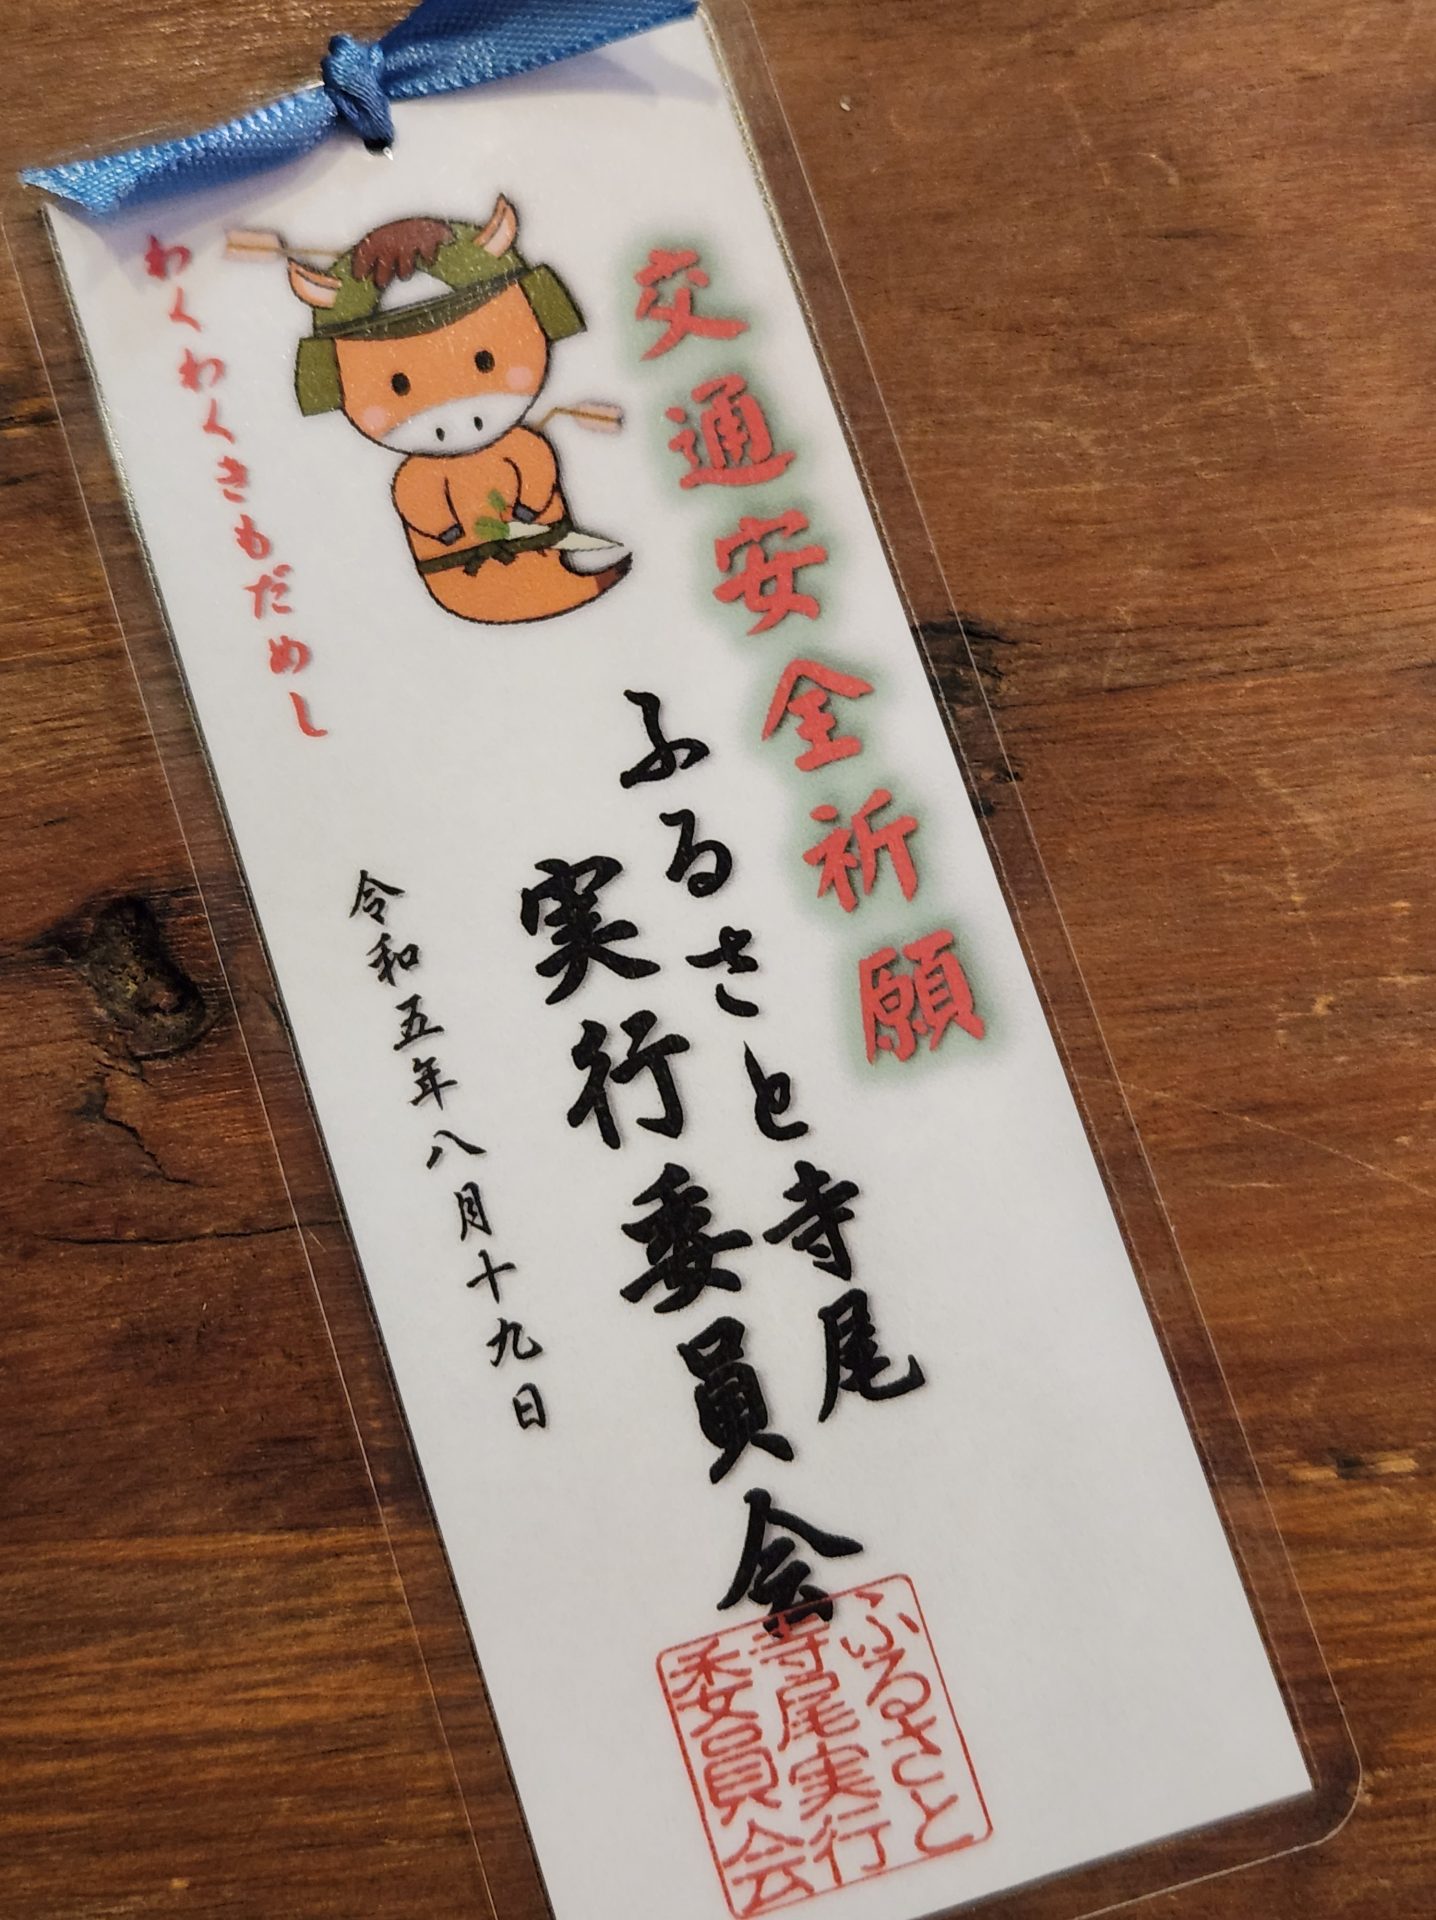 交通安全祈願
ふるさと寺尾
実行委員会
令和五年八月十九日
わくわくきもだめし
ふるさと
寺尾実行
委員会